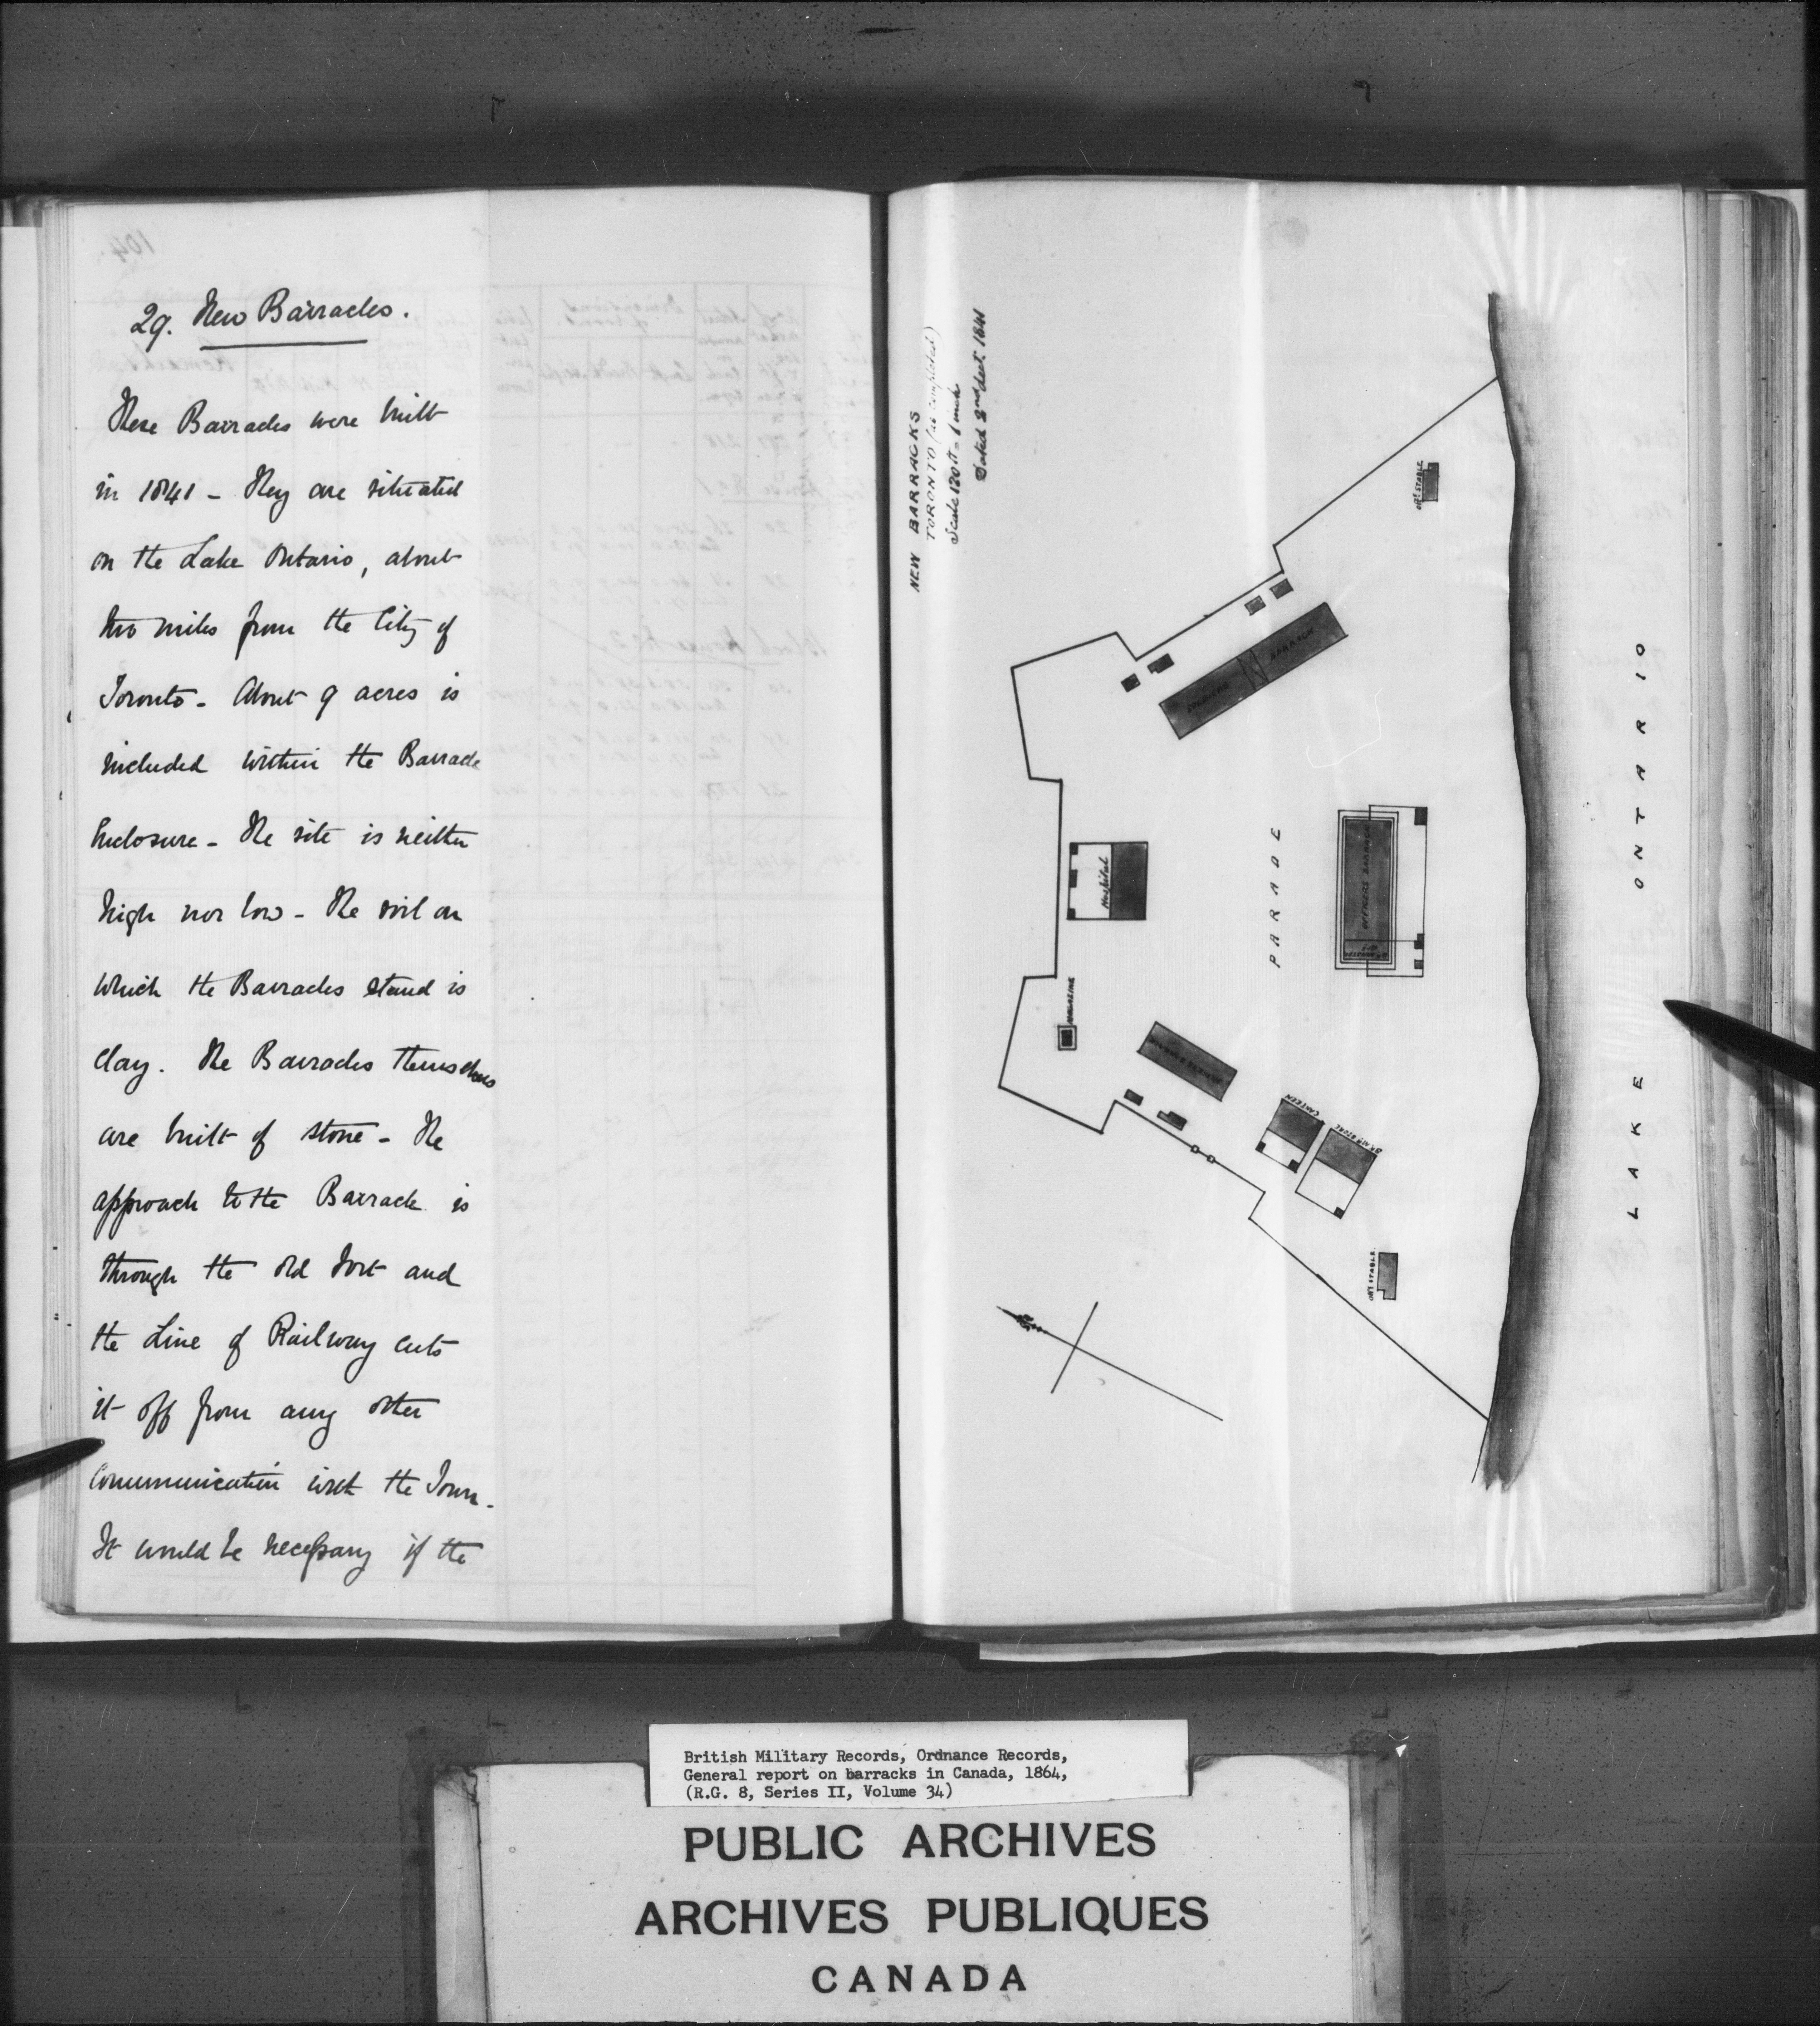 29. New Barracks.
These Barracks were built
in 1841 - They are situated
on the Lake Ontario, about
two miles from the City of
Toronto - About 9 acres is
included within the Barrack
Enclosure - The site is neither
high nor low - The soil on
which the Barracks stand is
clay. The Barracks themselves
are built of stone - The
approach to the Barrack is
through the old Fort and
the Line of Railway cuts
it off from any other
communication with the Town.
It would be necessary if the
NEW BARRACKS
TORONTO (as completed)
Scale 120 ft = 1 inch
Dated 2nd Sept. 1841
STABLE
SOLDIERS BARRACK
Hospital
PARADE
OFFICERS BARRACK
MAGAZINE
CANTEEN
BARRK STORE
STABLE
LAKE ONTARIO
British Military Records, Ordnance Records,
General report on barracks in Canada, 1864,
(R.G. 8, Series II, Volume 34)
PUBLIC ARCHIVES
ARCHIVES PUBLIQUES
CANADA